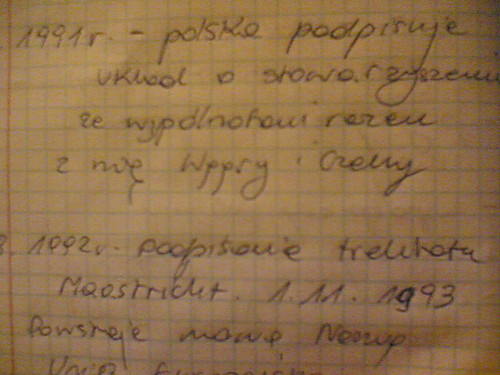 1991r. - polska podpisuje
układ o stowarzyszeniu
ze wspólnotami razem
z nią Węgry i Czechy
3. 1992r. podpisanie traktatu
Maastricht. 1.11.1993
Powstaje nowa
Unia Europejska